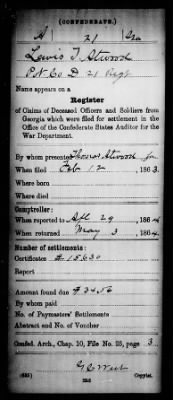 (CONFEDERATE.)
A 21 Ga
Lewis T. Atwood
Pvt Co D 21 Regt
Name appears on a
Register
of Claims of Deceased Officers and Soldiers from
Georgia which were filed for settlement in the
Office of the Confederate States Auditor for the
War Department.
By whom presented Thomas Atwood
When filed Feb 12, 1863
Where born
Where died
Comptroller:
When reported to Apl 29, 1864
When returned May 3, 1864
Number of settlements:
Certificate # 15630
Report
Amount found due $ 34.56
By whom paid
No. of Paymasters' Settlements
Abstract and No. of Voucher
Confed. Arch., Chap. 10, File No. 25, page 3
(635)
Copyist.